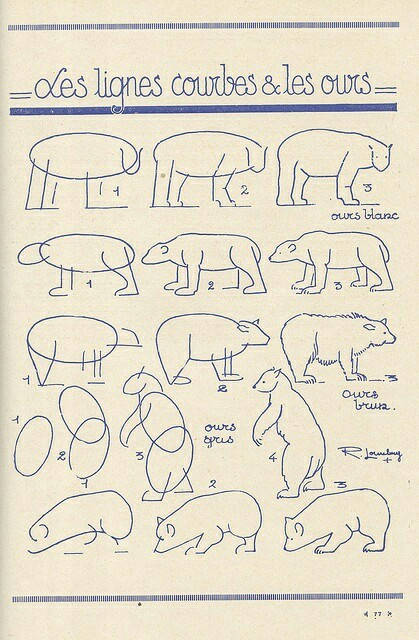 Les lignes courbes & les ours
1 2 3
ours blanc
1 2 3
1 2 3
ours
brun.
1 2 3 4
ours
gris
1 2 3
77